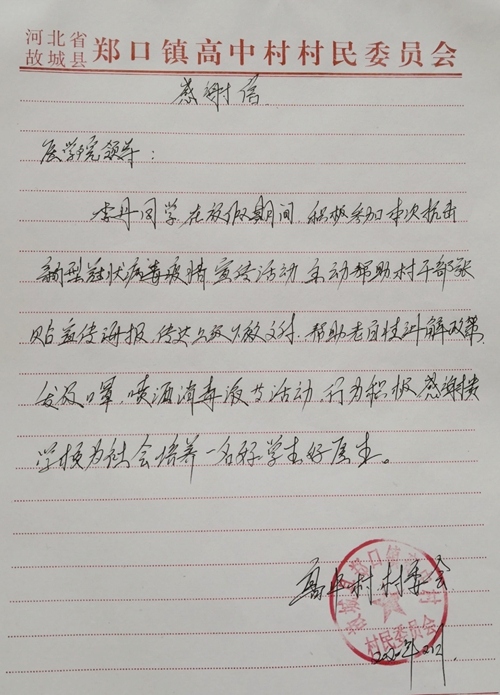 河北省
故城县 郑口镇高中村村民委员会
感谢信
医学院领导：
李丹同学在放假期间积极参加本次抗击
新型冠状病毒疫情宣传活动主动帮助村干部张
贴宣传海报、传达上级政府文件、帮助老百姓讲解政策,
发放口罩,喷洒消毒液等活动,行为积极,感谢贵
学校为社会培养一名好学生好医生。
高中村村委会
村民委员会